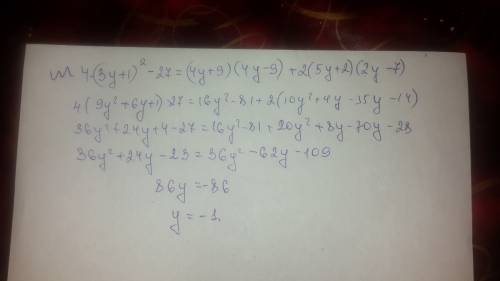 4·(3y+1)² - 27 = (4y+9)(4y-9) + 2(5y+2)(2y-7)
4(9y²+6y+1)-27 = 16y²-81+2(10y²+4y-35y-14)
36y²+24y+4-27 = 16y²-81+20y²+8y-70y-28
36y²+24y-23 = 36y²-62y-109
86y = -86
y = -1.